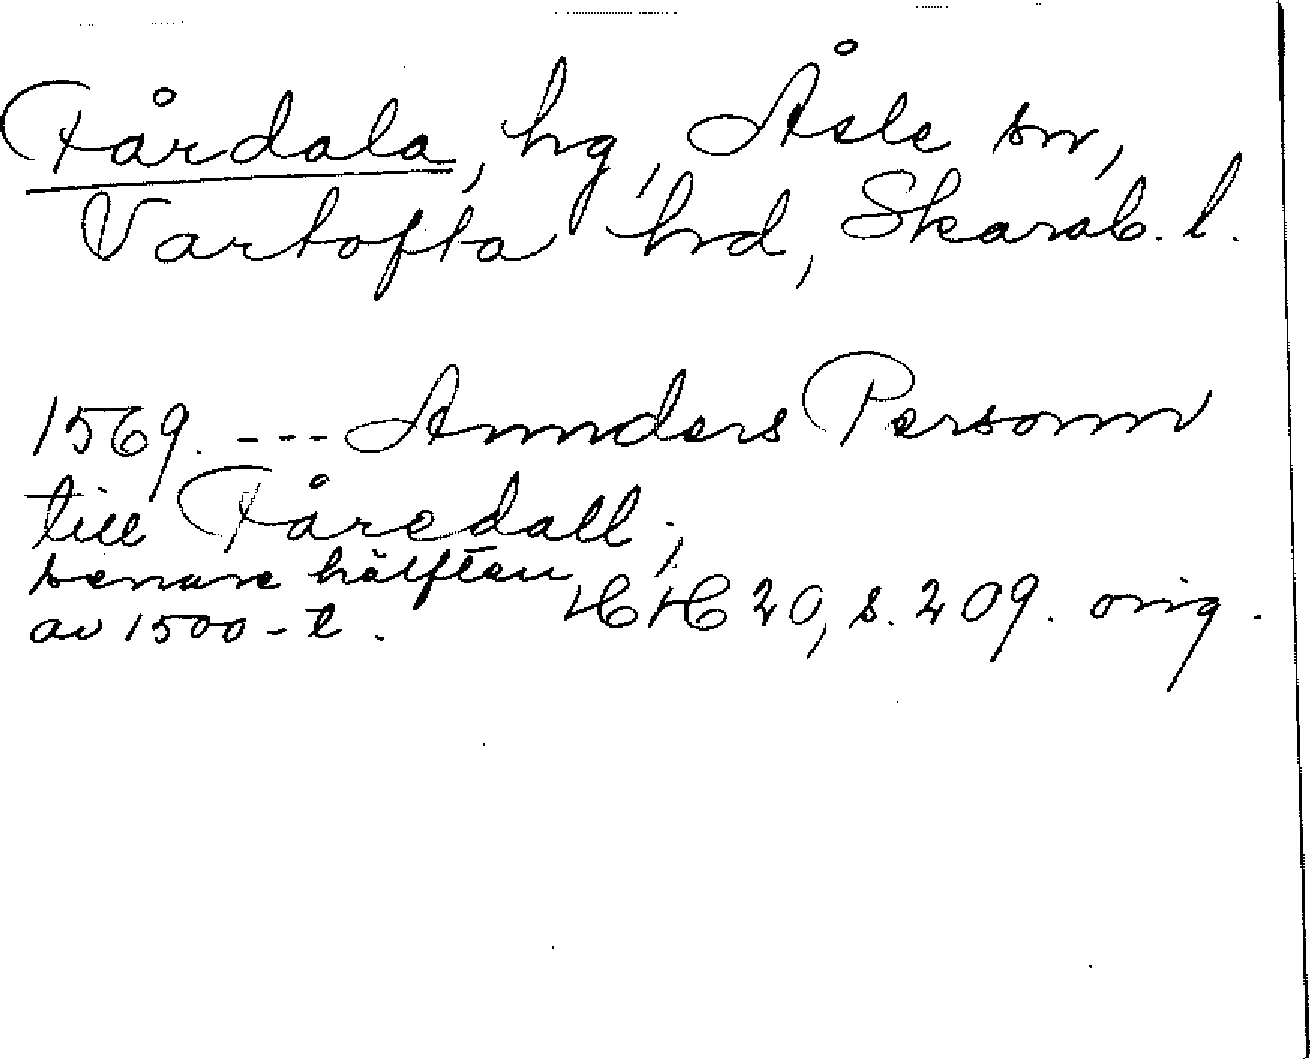 Fårdala, hg, Åsle sn,
Vartofta hrd, Skarab. l.
1569. --- Annders Personn
till Fåredall,
senare hälften
av 1500-t. HH 20, s. 209. orig.